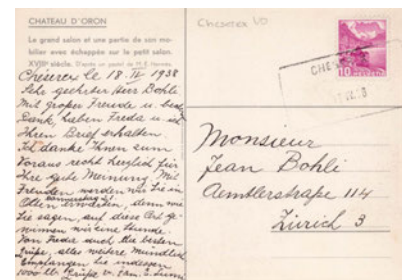 CHATEAU D'ORON
Le grand salon et une partie de son mo-
bilier avec échappée sur le petit salon.
XVIIIe siècle. D'après un pastel de
Chexrex VD
HELVETIA
10
CHE
Cheserex le 18. 1938
Sehr geehrter Herr Bohli
Mit grosser Freude u. best
Dank, haben Freda u. ich
Ihren Brief erhalten.
Ich danke Ihnen zum
Voraus recht herzlich für
Ihre gute Meinung. Mit
Freuden werden wir Sie in
Olten erwarten, denn wie
Sie sagen, auf diese Art ge-
winnen wir eine Stunde.
Von Freda auch die besten
Grüsse, alles weitere mündlich
Empfangen Sie indessen
1000 lb. Grüsse v. Fam.
Monsieur
Jean Bohli
Aemtlerstrasse 114
Zürich 3